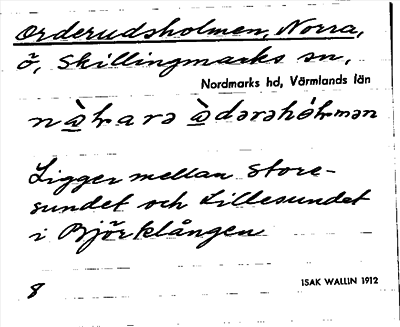 Orderudsholmen, Norra,
ö, Skillingmarks sn,
Nordmarks hd, Värmlands län
Ligger mellan Store-
sundet och Lillesundet
i Björklången
8
ISAK WALLIN 1912